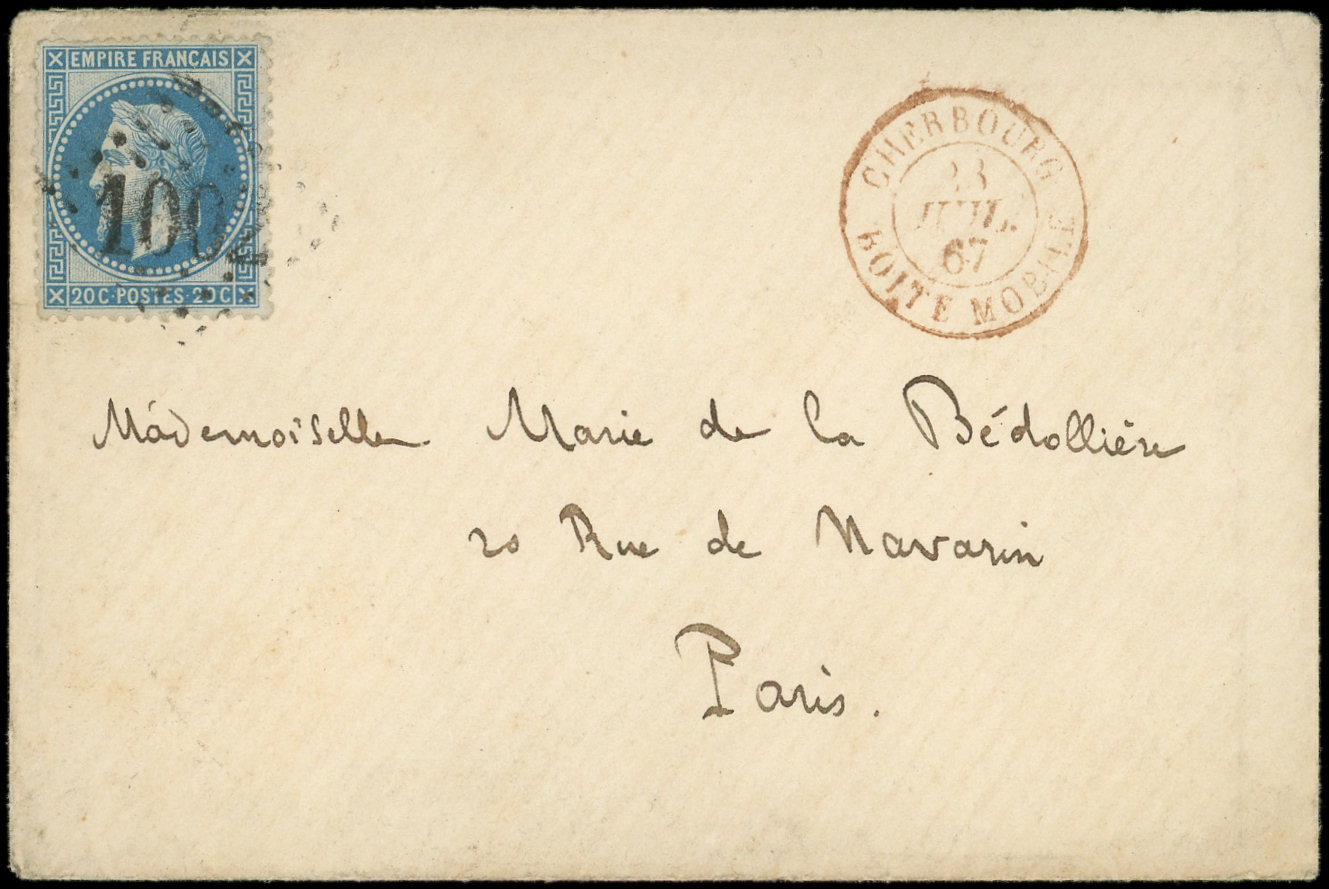 EMPIRE FRANCAIS
20C·POSTES·20C
CHERBOURG
23
JUIL.
67
BOITE MOBILE
Mademoiselle Marie de la Bédollière
20 Rue de Navarin
Paris.